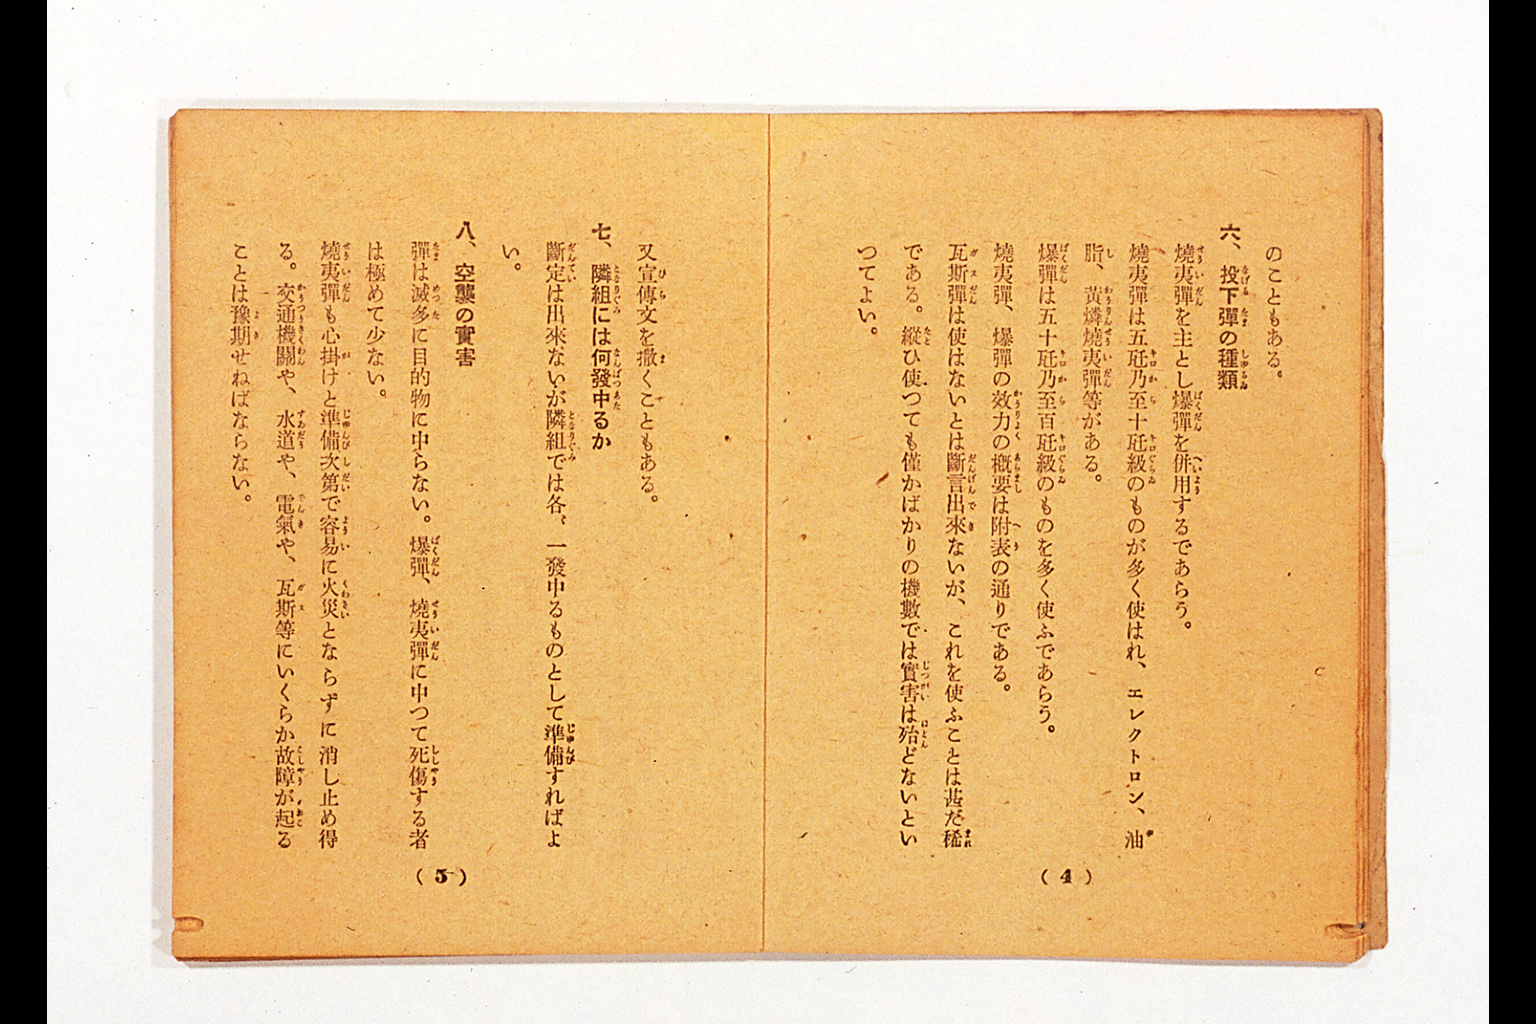 のこともある。
六、投下彈の種類
燒夷彈を主とし爆彈を併用するであらう。
燒夷彈は五瓩乃至十瓩級のものが多く使はれ、エレクトロン、油
脂、黃燐燒夷彈等がある。
爆彈は五十瓩乃至百瓩級のものを多く使ふであらう。
燒夷彈、爆彈の效力の槪要は附表の通りである。
瓦斯彈は使はないとは斷言出來ないが、これを使ふことは甚だ稀
である。縱ひ使つても僅かばかりの機數では實害は殆どないとい
つてよい。
(4)
又宣傳文を撒くこともある。
七、隣組には何發中るか
斷定は出來ないが隣組では各〻一發中るものとして準備すればよ
い。
八、空襲の實害
彈は滅多に目的物に中らない。爆彈、燒夷彈に中つて死傷する者
は極めて少ない。
燒夷彈も心掛けと準備次第で容易に火災とならずに消し止め得
る。交通機關や、水道や、電氣や、瓦斯等にいくらか故障が起る
ことは豫期せねばならない。
(5)